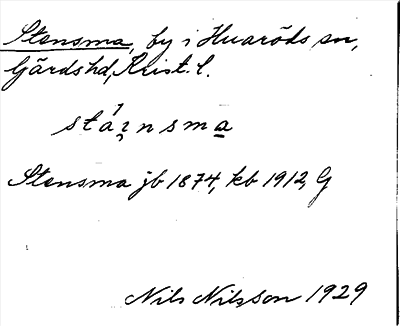 Stensma, by i Huaröds sn,
Gärds hd, Krist. l.
stáınsma
Stensma jb 1874, kb 1912, G
Nils Nilsson 1929